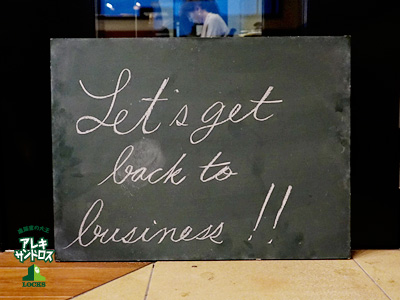 Let's get
back to
business!!
アレキ
サンドロス
LOCKS